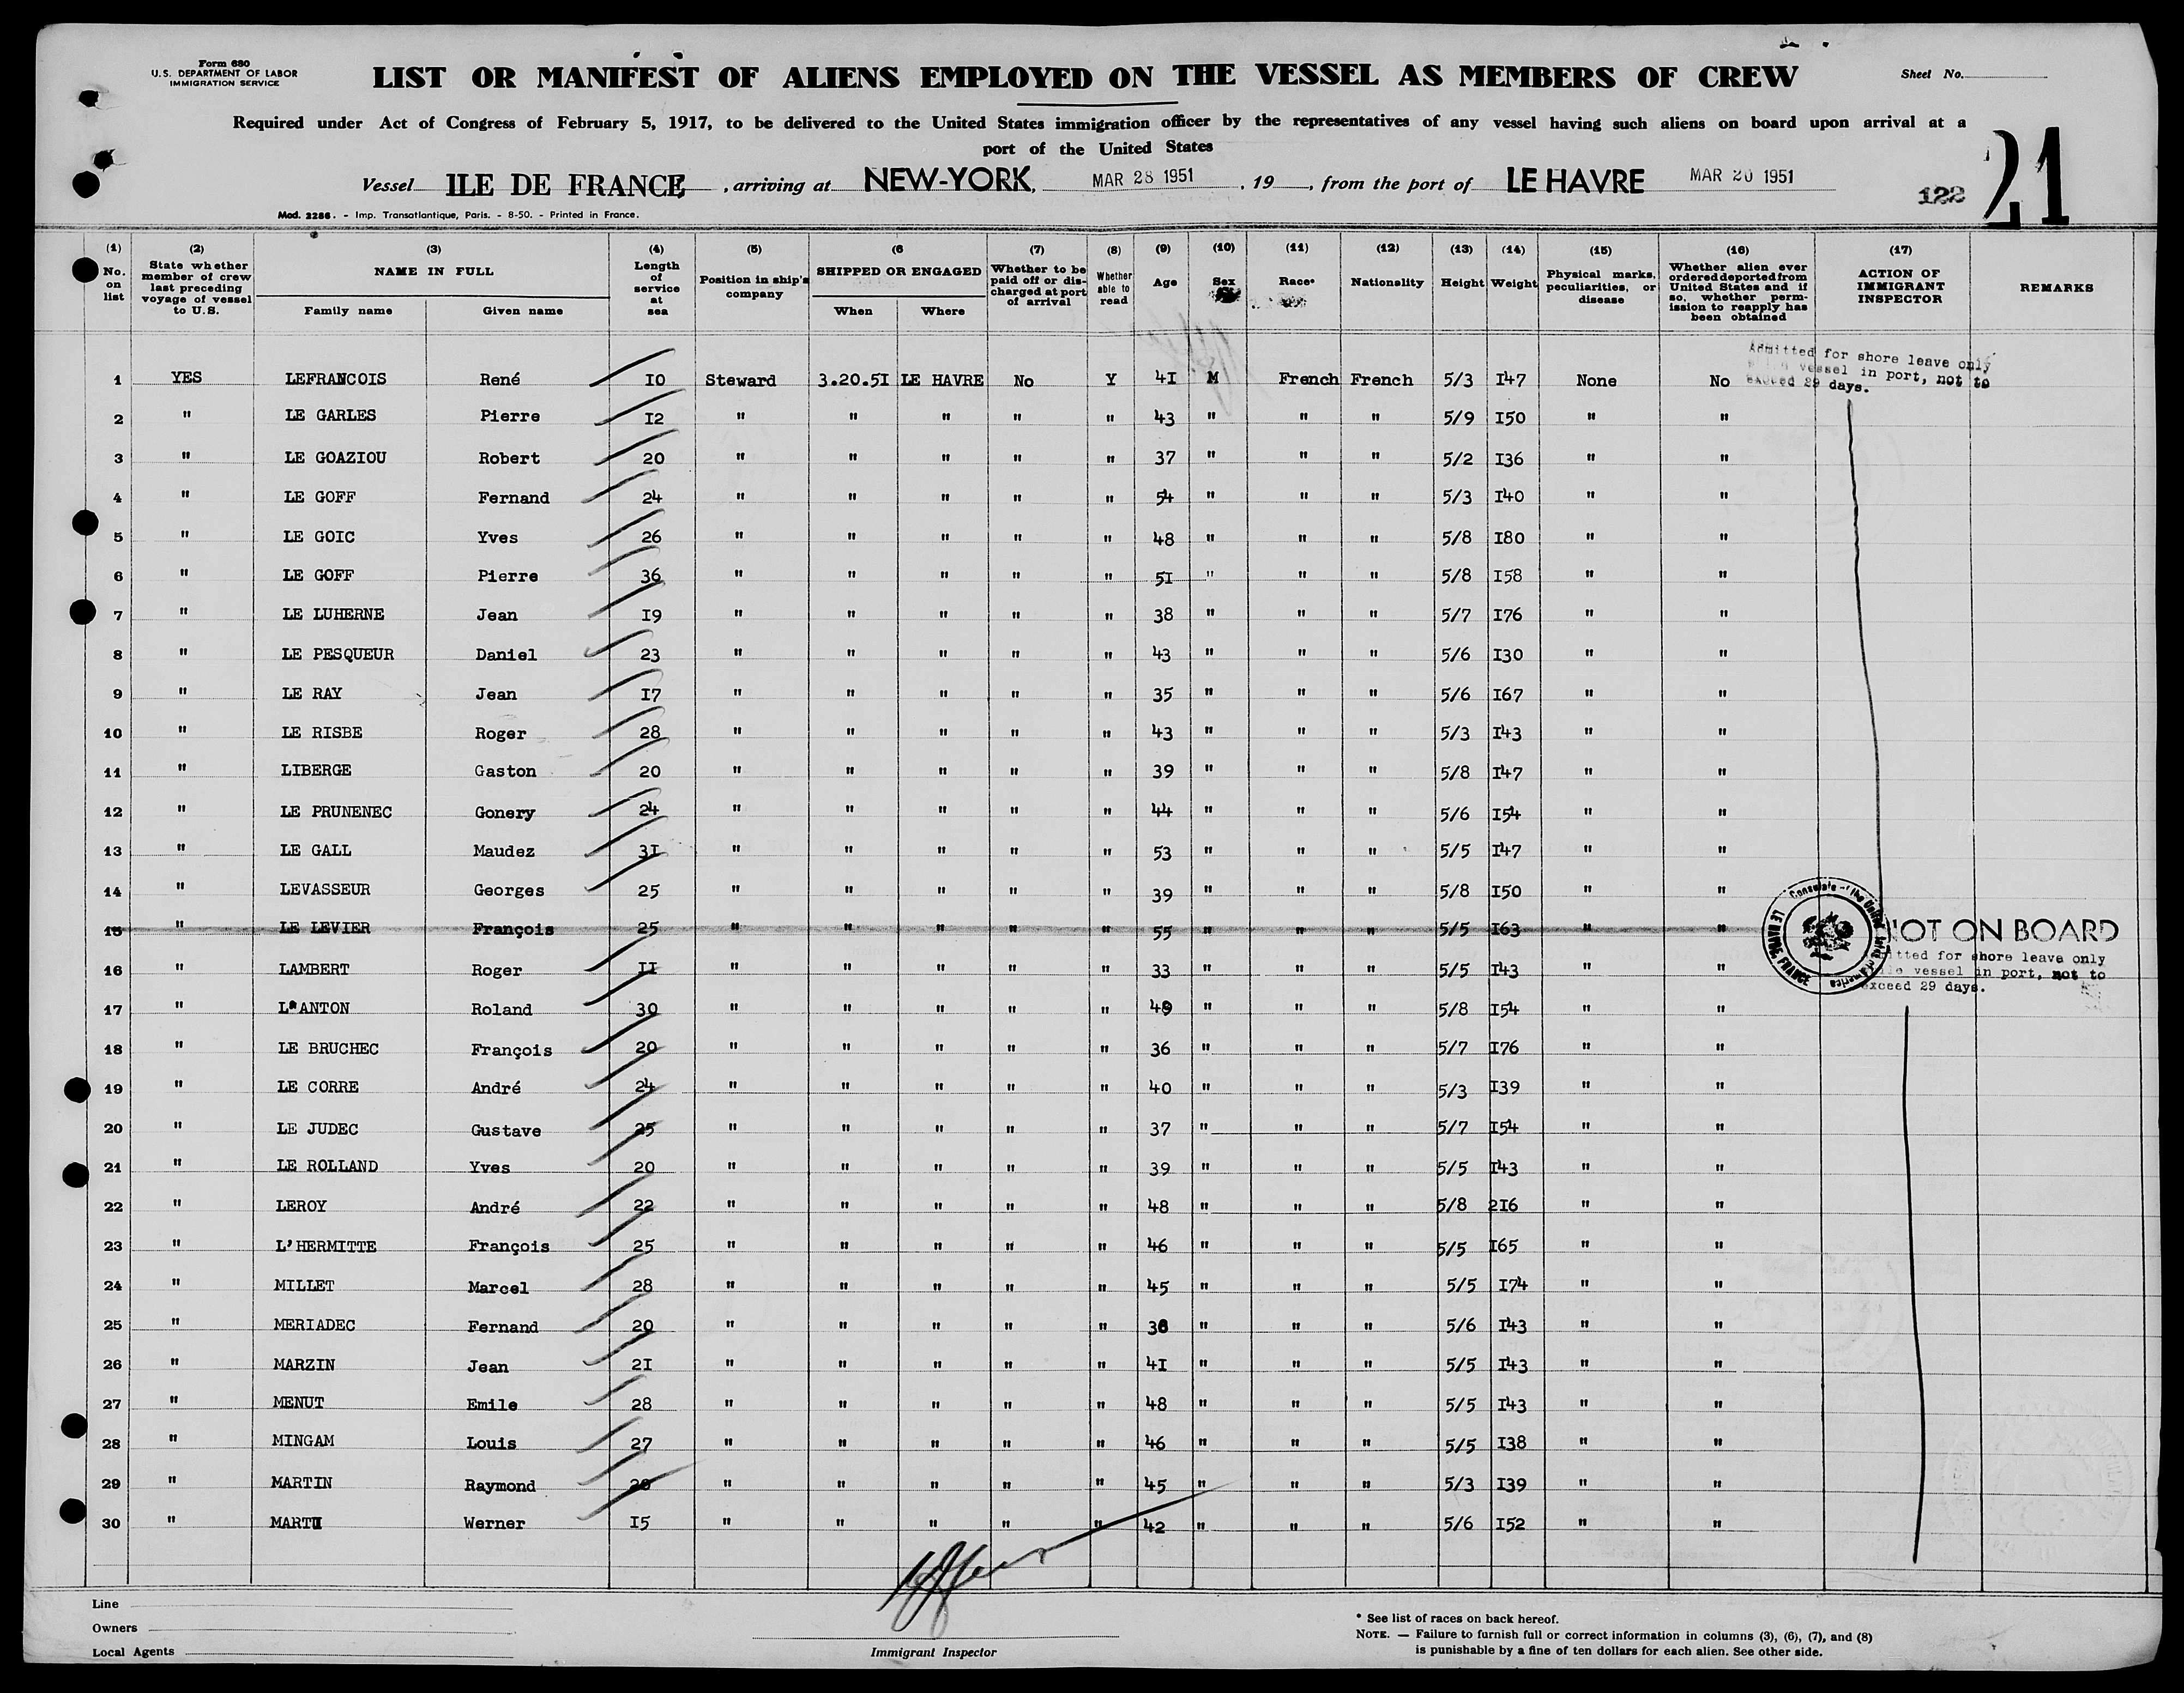 Form 680
U.S. DEPARTMENT OF LABOR
IMMIGRATION SERVICE
LIST OR MANIFEST OF ALIENS EMPLOYED ON THE VESSEL AS MEMBERS OF CREW
Sheet No.
Required under Act of Congress of February 5, 1917, to be delivered to the United States immigration officer by the representatives of any vessel having such aliens on board upon arrival at a
port of the United States
21
Vessel ILE DE FRANCE, arriving at NEW-YORK, MAR 28 1951, 19 , from the port of LE HAVRE MAR 20 1951
122
Mod. 2286. - Imp. Transatlantique, Paris. - 8-50. - Printed in France.
(1) No. on list (2) State whether member of crew last preceding voyage of vessel to U.S. (3) NAME IN FULL Family name Given name (4) Length of service at sea (5) Position in ship's company (6 SHIPPED OR ENGAGED When Where (7) Whether to be paid off or discharged at port of arrival (8) Whether able to read (9) Age (10) Sex (11) Race* (12) Nationality (13) Height (14) Weight (15) Physical marks, peculiarities, or disease (16) Whether alien ever ordered deported from United States and if so, whether permission to reapply has been obtained (17) ACTION OF IMMIGRANT INSPECTOR REMARKS
Admitted for shore leave only
vessel in port, not to
exceed 29 days.
1 YES LEFRANCOIS René 10 Steward 3.20.51 LE HAVRE No Y 41 M French French 5/3 147 None No
2 " LE GARLES Pierre 12 " " " " " 43 " " " 5/9 150 " "
3 " LE GOAZIOU Robert 20 " " " " " 37 " " " 5/2 136 " "
4 " LE GOFF Fernand 24 " " " " " 54 " " " 5/3 140 " "
5 " LE GOIC Yves 26 " " " " " 48 " " " 5/8 180 " "
6 " LE GOFF Pierre 36 " " " " " 51 " " " 5/8 158 " "
7 " LE LUHERNE Jean 19 " " " " " 38 " " " 5/7 176 " "
8 " LE PESQUEUR Daniel 23 " " " " " 43 " " " 5/6 130 " "
9 " LE RAY Jean 17 " " " " " 35 " " " 5/6 167 " "
10 " LE RISBE Roger 28 " " " " " 43 " " " 5/3 143 " "
11 " LIBERGE Gaston 20 " " " " " 39 " " " 5/8 147 " "
12 " LE PRUNENEC Gonery 24 " " " " " 44 " " " 5/6 154 " "
13 " LE GALL Maudez 31 " " " " " 53 " " " 5/5 147 " "
14 " LEVASSEUR Georges 25 " " " " " 39 " " " 5/8 150 " "
15 " LE LEVIER François 25 " " " " " 55 " " " 5/5 163 " " NOT ON BOARD
Consulate of the United States of America LE HAVRE, FRANCE
16 " LAMBERT Roger 11 " " " " " 33 " " " 5/5 143 " "
itted for shore leave only
vessel in port, not to
exceed 29 days.
17 " L'ANTON Roland 30 " " " " " 49 " " " 5/8 154 " "
18 " LE BRUCHEC François 20 " " " " " 36 " " " 5/7 176 " "
19 " LE CORRE André 24 " " " " " 40 " " " 5/3 139 " "
20 " LE JUDEC Gustave 25 " " " " " 37 " " " 5/7 154 " "
21 " LE ROLLAND Yves 20 " " " " " 39 " " " 5/5 143 " "
22 " LEROY André 22 " " " " " 48 " " " 5/8 216 " "
23 " L'HERMITTE François 25 " " " " " 46 " " " 5/5 165 " "
24 " MILLET Marcel 28 " " " " " 45 " " " 5/5 174 " "
25 " MERIADEC Fernand 20 " " " " " " " " 5/6 143 " "
26 " MARZIN Jean 21 " " " " " 41 " " " 5/5 143 " "
27 " MENUT Emile 28 " " " " " 48 " " " 5/5 143 " "
28 " MINGAM Louis 27 " " " " " 46 " " " 5/5 138 " "
29 " MARTIN Raymond " " " " " 45 " " " 5/3 139 " "
30 " Werner 15 " " " " " 42 " " " 5/6 152 " "
Line
Owners
Local Agents
Immigrant Inspector
* See list of races on back hereof.
NOTE. — Failure to furnish full or correct information in columns (3), (6), (7), and (8)
is punishable by a fine of ten dollars for each alien. See other side.